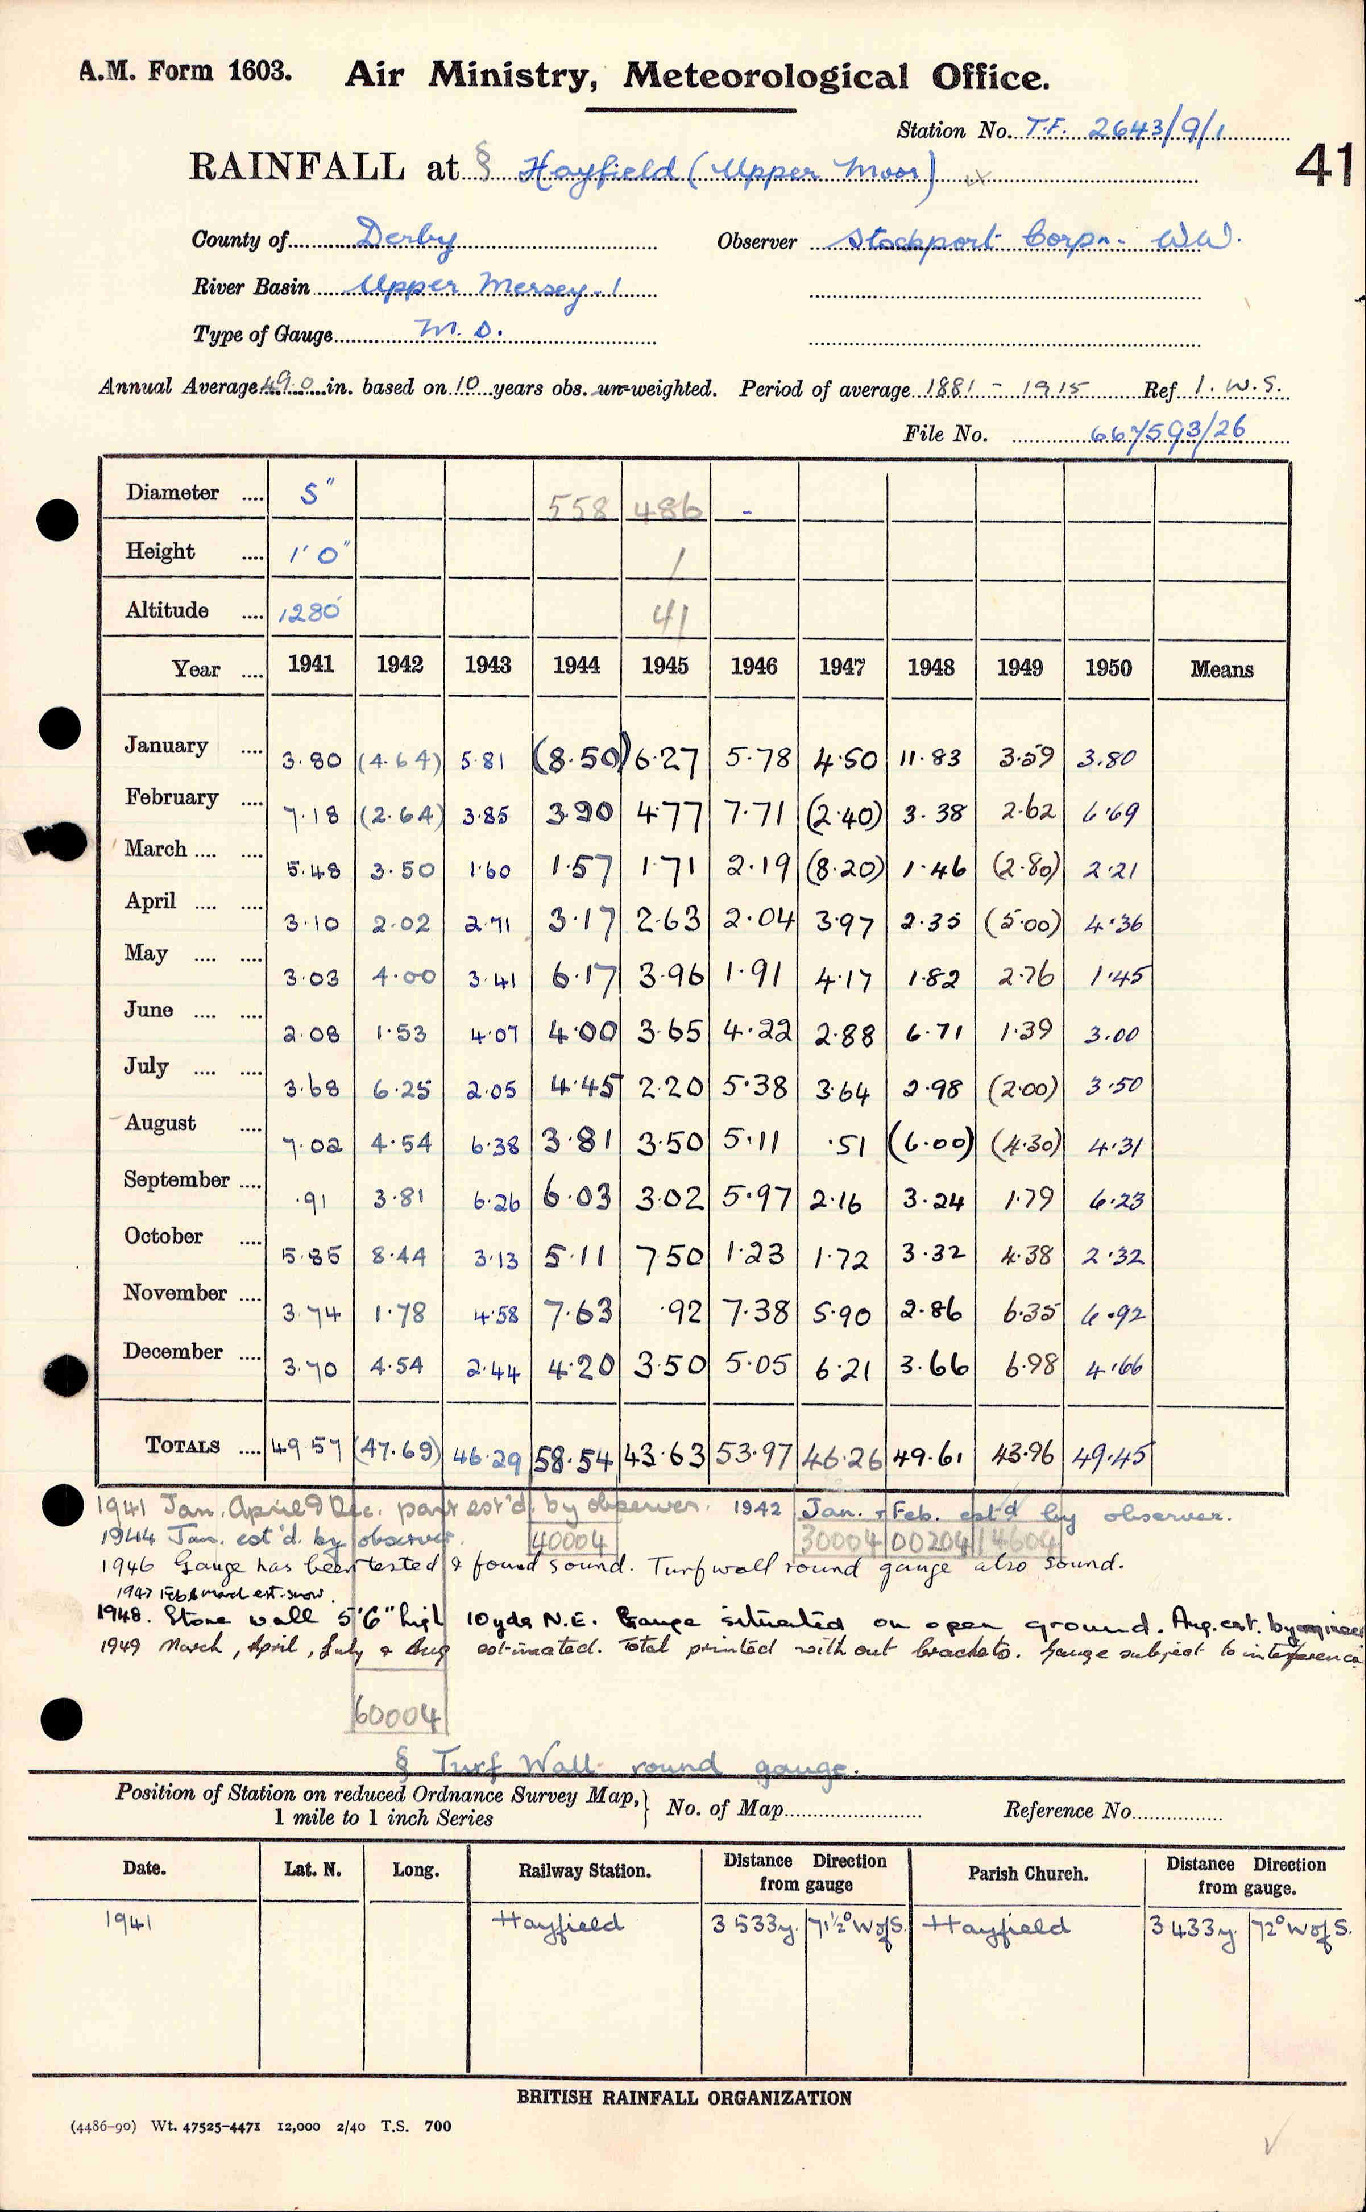 A.M. Form 1603. Air Ministry, Meteorological Office.
Station No. T.F. 2643/9/1
41
RAINFALL at § Hayfield (Upper Moor)
County of Derby Observer Stockport Corpn. W.W.
River Basin Upper Mersey. 1
Type of Gauge M.O.
Annual Average 49.0 in. based on 10 years obs. un-weighted. Period of average 1881 - 1915 Ref I.W.S.
File No. 667593/26
Diameter .... 5" 558 486 -
Height .... 1' 0" 1
Altitude .... 1280' 41
Year .... 1941 1942 1943 1944 1945 1946 1947 1948 1949 1950 Means
January .... 3.80 (4.64) 5.81 (8.50) 6.27 5.78 4.50 11.83 3.59 3.80
February .... 7.18 (2.64) 3.85 3.90 4.77 7.71 (2.40) 3.38 2.62 6.69
March .... .... 5.48 3.50 1.60 1.57 1.71 2.19 (8.20) 1.46 (2.80) 2.21
April .... .... 3.10 2.02 2.71 3.17 2.63 2.04 3.97 2.35 (5.00) 4.36
May .... .... 3.03 4.00 3.41 6.17 3.96 1.91 4.17 1.82 2.76 1.45
June .... .... 2.08 1.53 4.07 4.00 3.65 4.22 2.88 6.71 1.39 3.00
July .... .... 3.68 6.25 2.05 4.45 2.20 5.38 3.64 2.98 (2.00) 3.50
August .... 7.02 4.54 6.38 3.81 3.50 5.11 .51 (6.00) (4.30) 4.31
September .... .91 3.81 6.26 6.03 3.02 5.97 2.16 3.24 1.79 6.23
October .... 5.85 8.44 3.13 5.11 7.50 1.23 1.72 3.32 4.38 2.32
November .... 3.74 1.78 4.58 7.63 .92 7.38 5.90 2.86 6.35 6.92
December .... 3.70 4.54 2.44 4.20 3.50 5.05 6.21 3.66 6.98 4.66
TOTALS .... 49.57 (47.69) 46.29 58.54 43.63 53.97 46.26 49.61 43.96 49.45
1941 Jan. April & Dec. part est'd. by observer. 1942 Jan. + Feb. est'd by observer.
1944 Jan. est'd. by observer. 40004 30004 00204 14604
1946 Gauge has been tested & found sound. Turf wall round gauge also sound.
1947 Feb & March est. snow.
1948. Stone wall 5'6" high 10 yds N.E. Gauge situated on open ground. Aug. est. by engineer
1949 March, April, July & Aug estimated. Total printed without brackets. Gauge subject to interference
60004
§ Turf Wall round gauge.
Position of Station on reduced Ordnance Survey Map, 1 mile to 1 inch Series } No. of Map Reference No.
Date. Lat. N. Long. Railway Station. Distance Direction from gauge Parish Church. Distance Direction from gauge.
1941 Hayfield 3533y. 71½° W of S. Hayfield 3433y. 72° W of S.
BRITISH RAINFALL ORGANIZATION
(4486-90) Wt. 47525-4471 12,000 2/40 T.S. 700